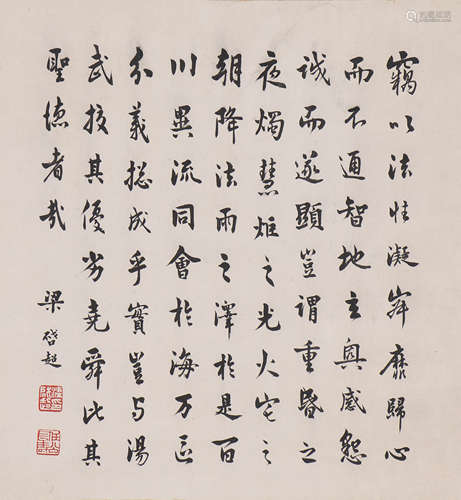 竊以法性凝寂靡歸心
而不通智地玄奧感懇
誠而遂顯豈謂重昏之
夜燭慧炬之光火宅之
朝降法雨之澤於是百
川異流同會於海万區
分義總成乎實豈与湯
武校其優劣堯舜比其
聖德者哉
梁啓超